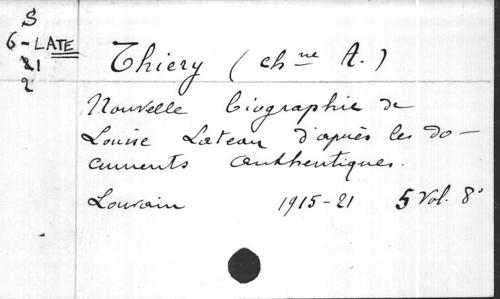 S
6-LATE
21
2
Thiery (chne A.)
Nouvelle biographie de
Louise Lateau d'après les do-
cuments authentiques.
Louvain 1915-21 5 Vol. 8°